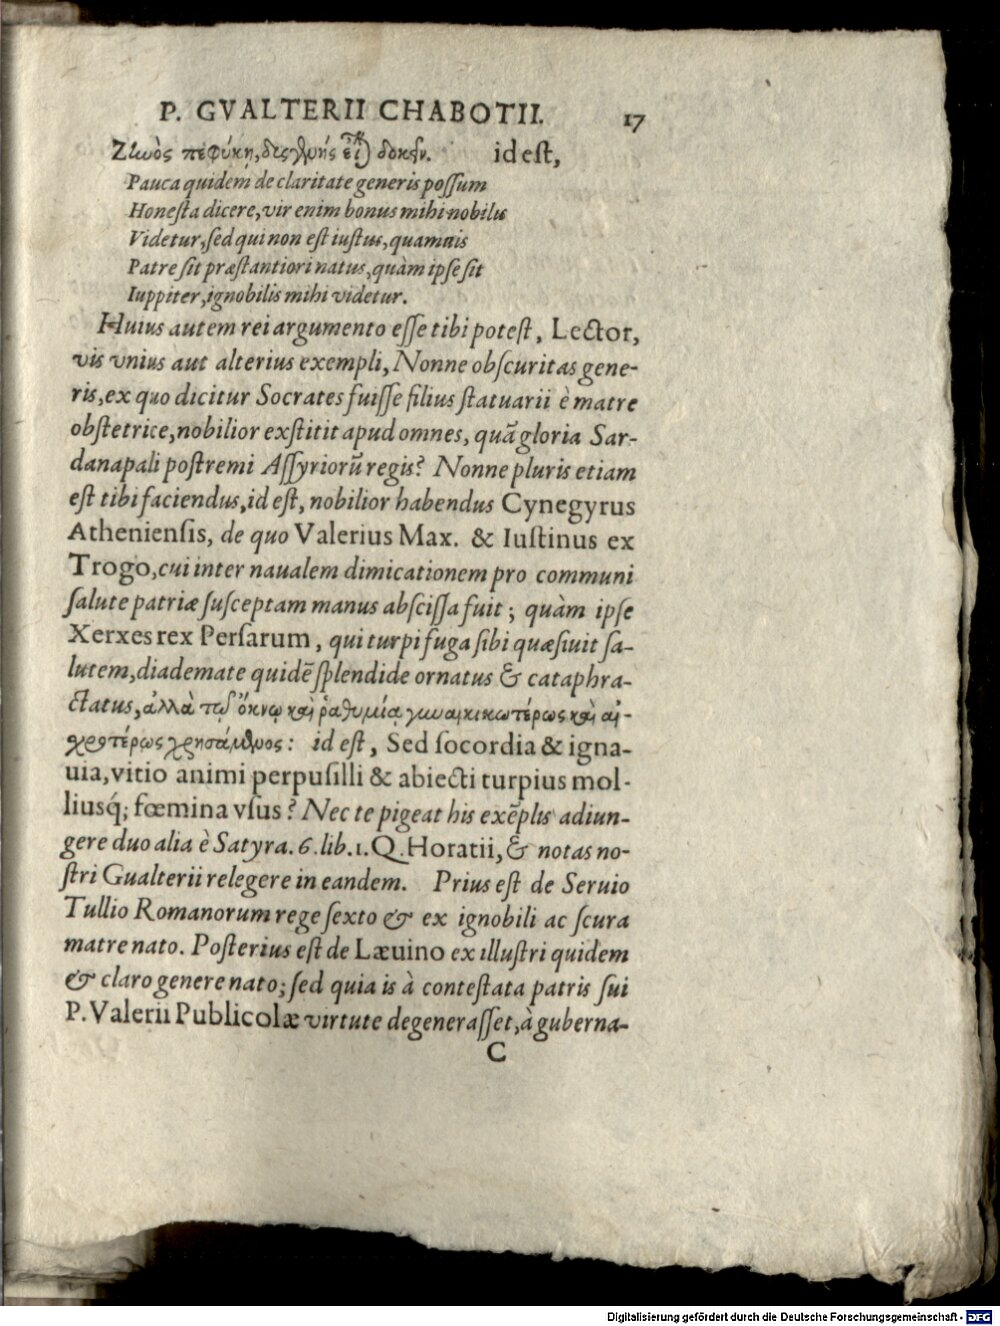 P. GVALTERII CHABOTII. 17
Ζίωὸς πεφύκῃ, δυσγενής εἶναι δοκεῖν. id est,
Pauca quidem de claritate generis possum
Honesta dicere, vir enim bonus mihi nobilis
Videtur, sed qui non est iustus, quamuis
Patre sit præstantiori natus, quàm ipse sit
Iuppiter, ignobilis mihi videtur.
Huius autem rei argumento esse tibi potest, Lector,
vis vnius aut alterius exempli, Nonne obscuritas gene-
ris, ex quo dicitur Socrates fuisse filius statuarii è matre
obstetrice, nobilior exstitit apud omnes, quã gloria Sar-
danapali postremi Assyriorũ regis? Nonne pluris etiam
est tibi faciendus, id est, nobilior habendus Cynegyrus
Atheniensis, de quo Valerius Max. & Iustinus ex
Trogo, cui inter naualem dimicationem pro communi
salute patriæ susceptam manus abscissa fuit; quàm ipse
Xerxes rex Persarum, qui turpi fuga sibi quæsiuit sa-
lutem, diademate quidẽ splendide ornatus & cataphra-
ctatus, ἀλλὰ τῷ ὄκνῳ καὶ ῥαθυμίᾳ γυναικικωτέρως καὶ αἰ-
χροτέρως χρησάμενος: id est, Sed socordia & igna-
uia, vitio animi perpusilli & abiecti turpius mol-
liusq́; fœmina vsus? Nec te pigeat his exẽplis adiun-
gere duo alia è Satyra. 6. lib. 1. Q. Horatii, & notas no-
stri Gualterii relegere in eandem. Prius est de Seruio
Tullio Romanorum rege sexto & ex ignobili ac scura
matre nato. Posterius est de Læuino ex illustri quidem
& claro genere nato; sed quia is à contestata patris sui
P. Valerii Publicolæ virtute degenerasset, à guberna-
C
Digitalisierung gefördert durch die Deutsche Forschungsgemeinschaft - DFG